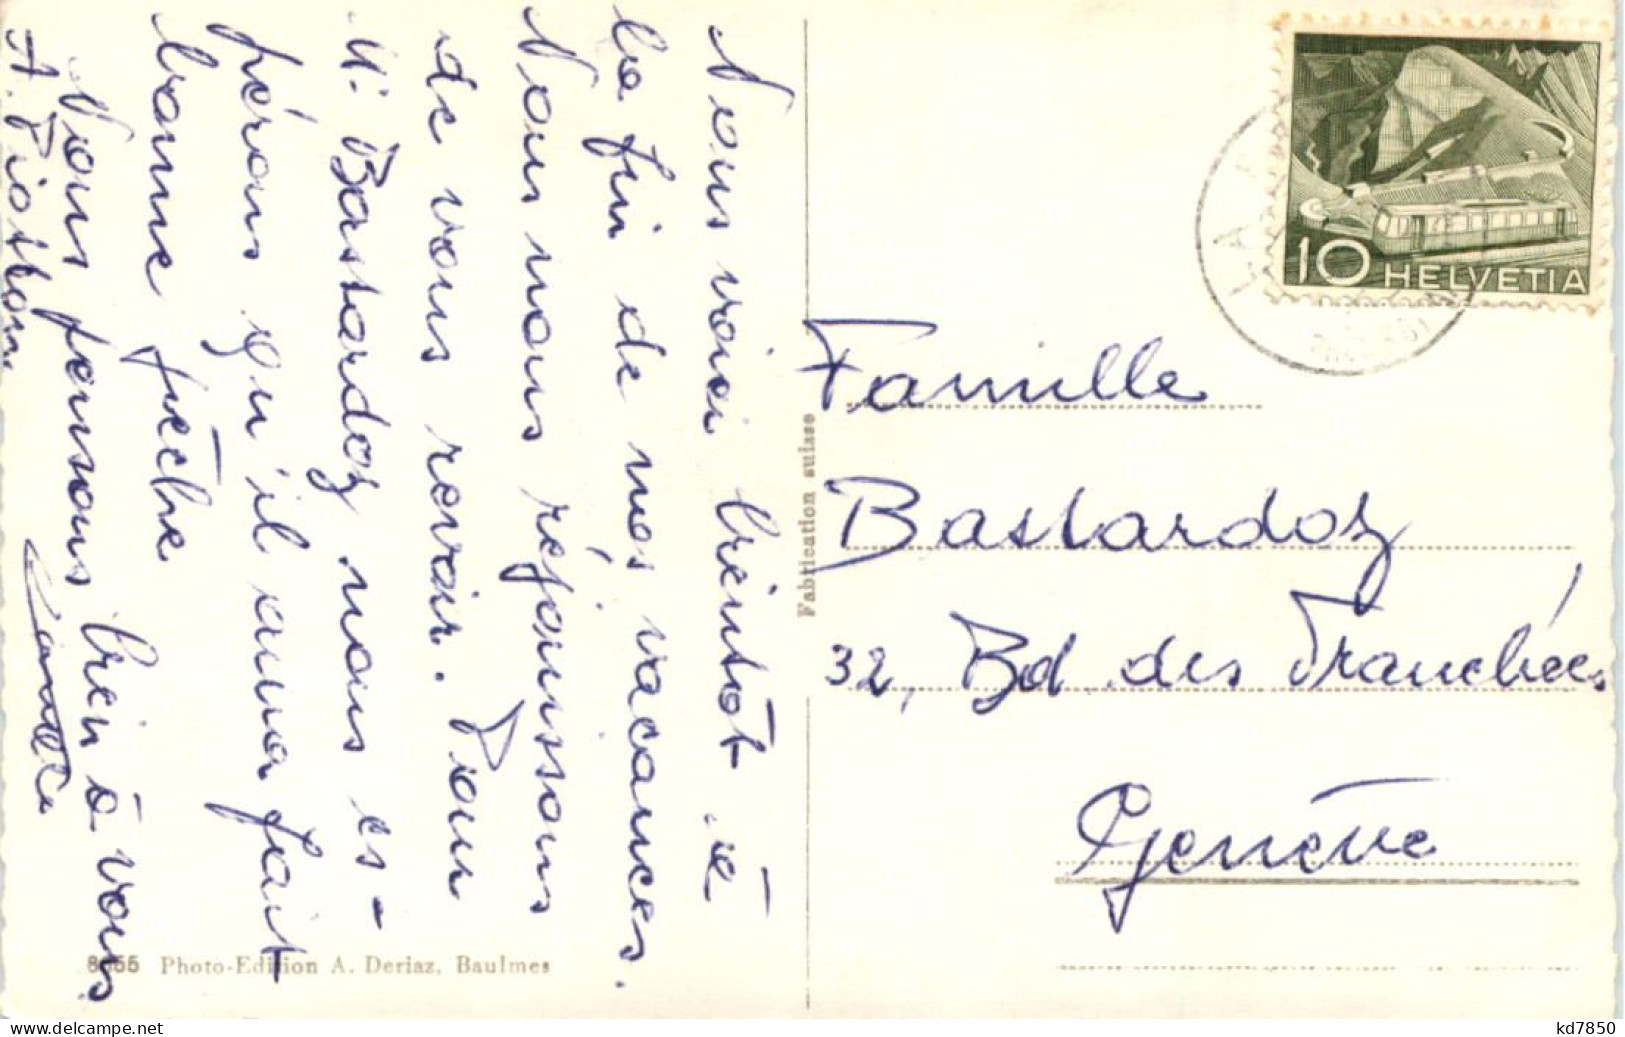 Nous voici bientôt à
la fin de nos vacances.
Nous nous réjouissons
de vous revoir. Pour
M. Bastardoz nous es-
pérons qu'il aura fait
bonne pêche
Nous pensons bien à vous
A.
8655 Photo-Edition A. Deriaz, Baulmes
Fabrication suisse
10 HELVETIA
Famille
Bastardoz
32, Bd des Tranchées
Genève
www.delcampe.net
kd7850